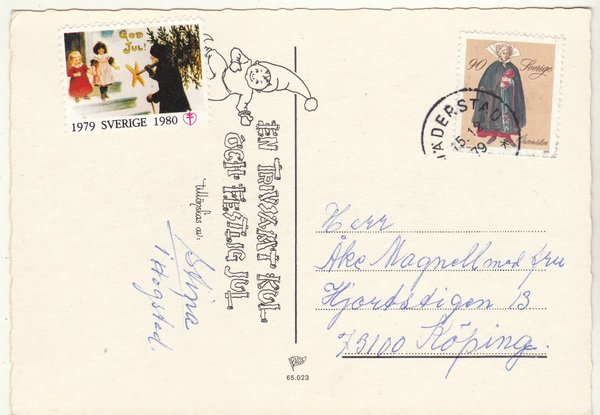 GOD
JUL!
1979 SVERIGE 1980
EN TRIVSAMT KUL
OCH FESTLIG JUL
tillönskas av:
Stipa
i Hogstad.
65.023
90 Sverige
VÄDERSTAD
15.12
79
Herr
Åke Magnell med fru
Hjortstigen 13
73100 Köping.